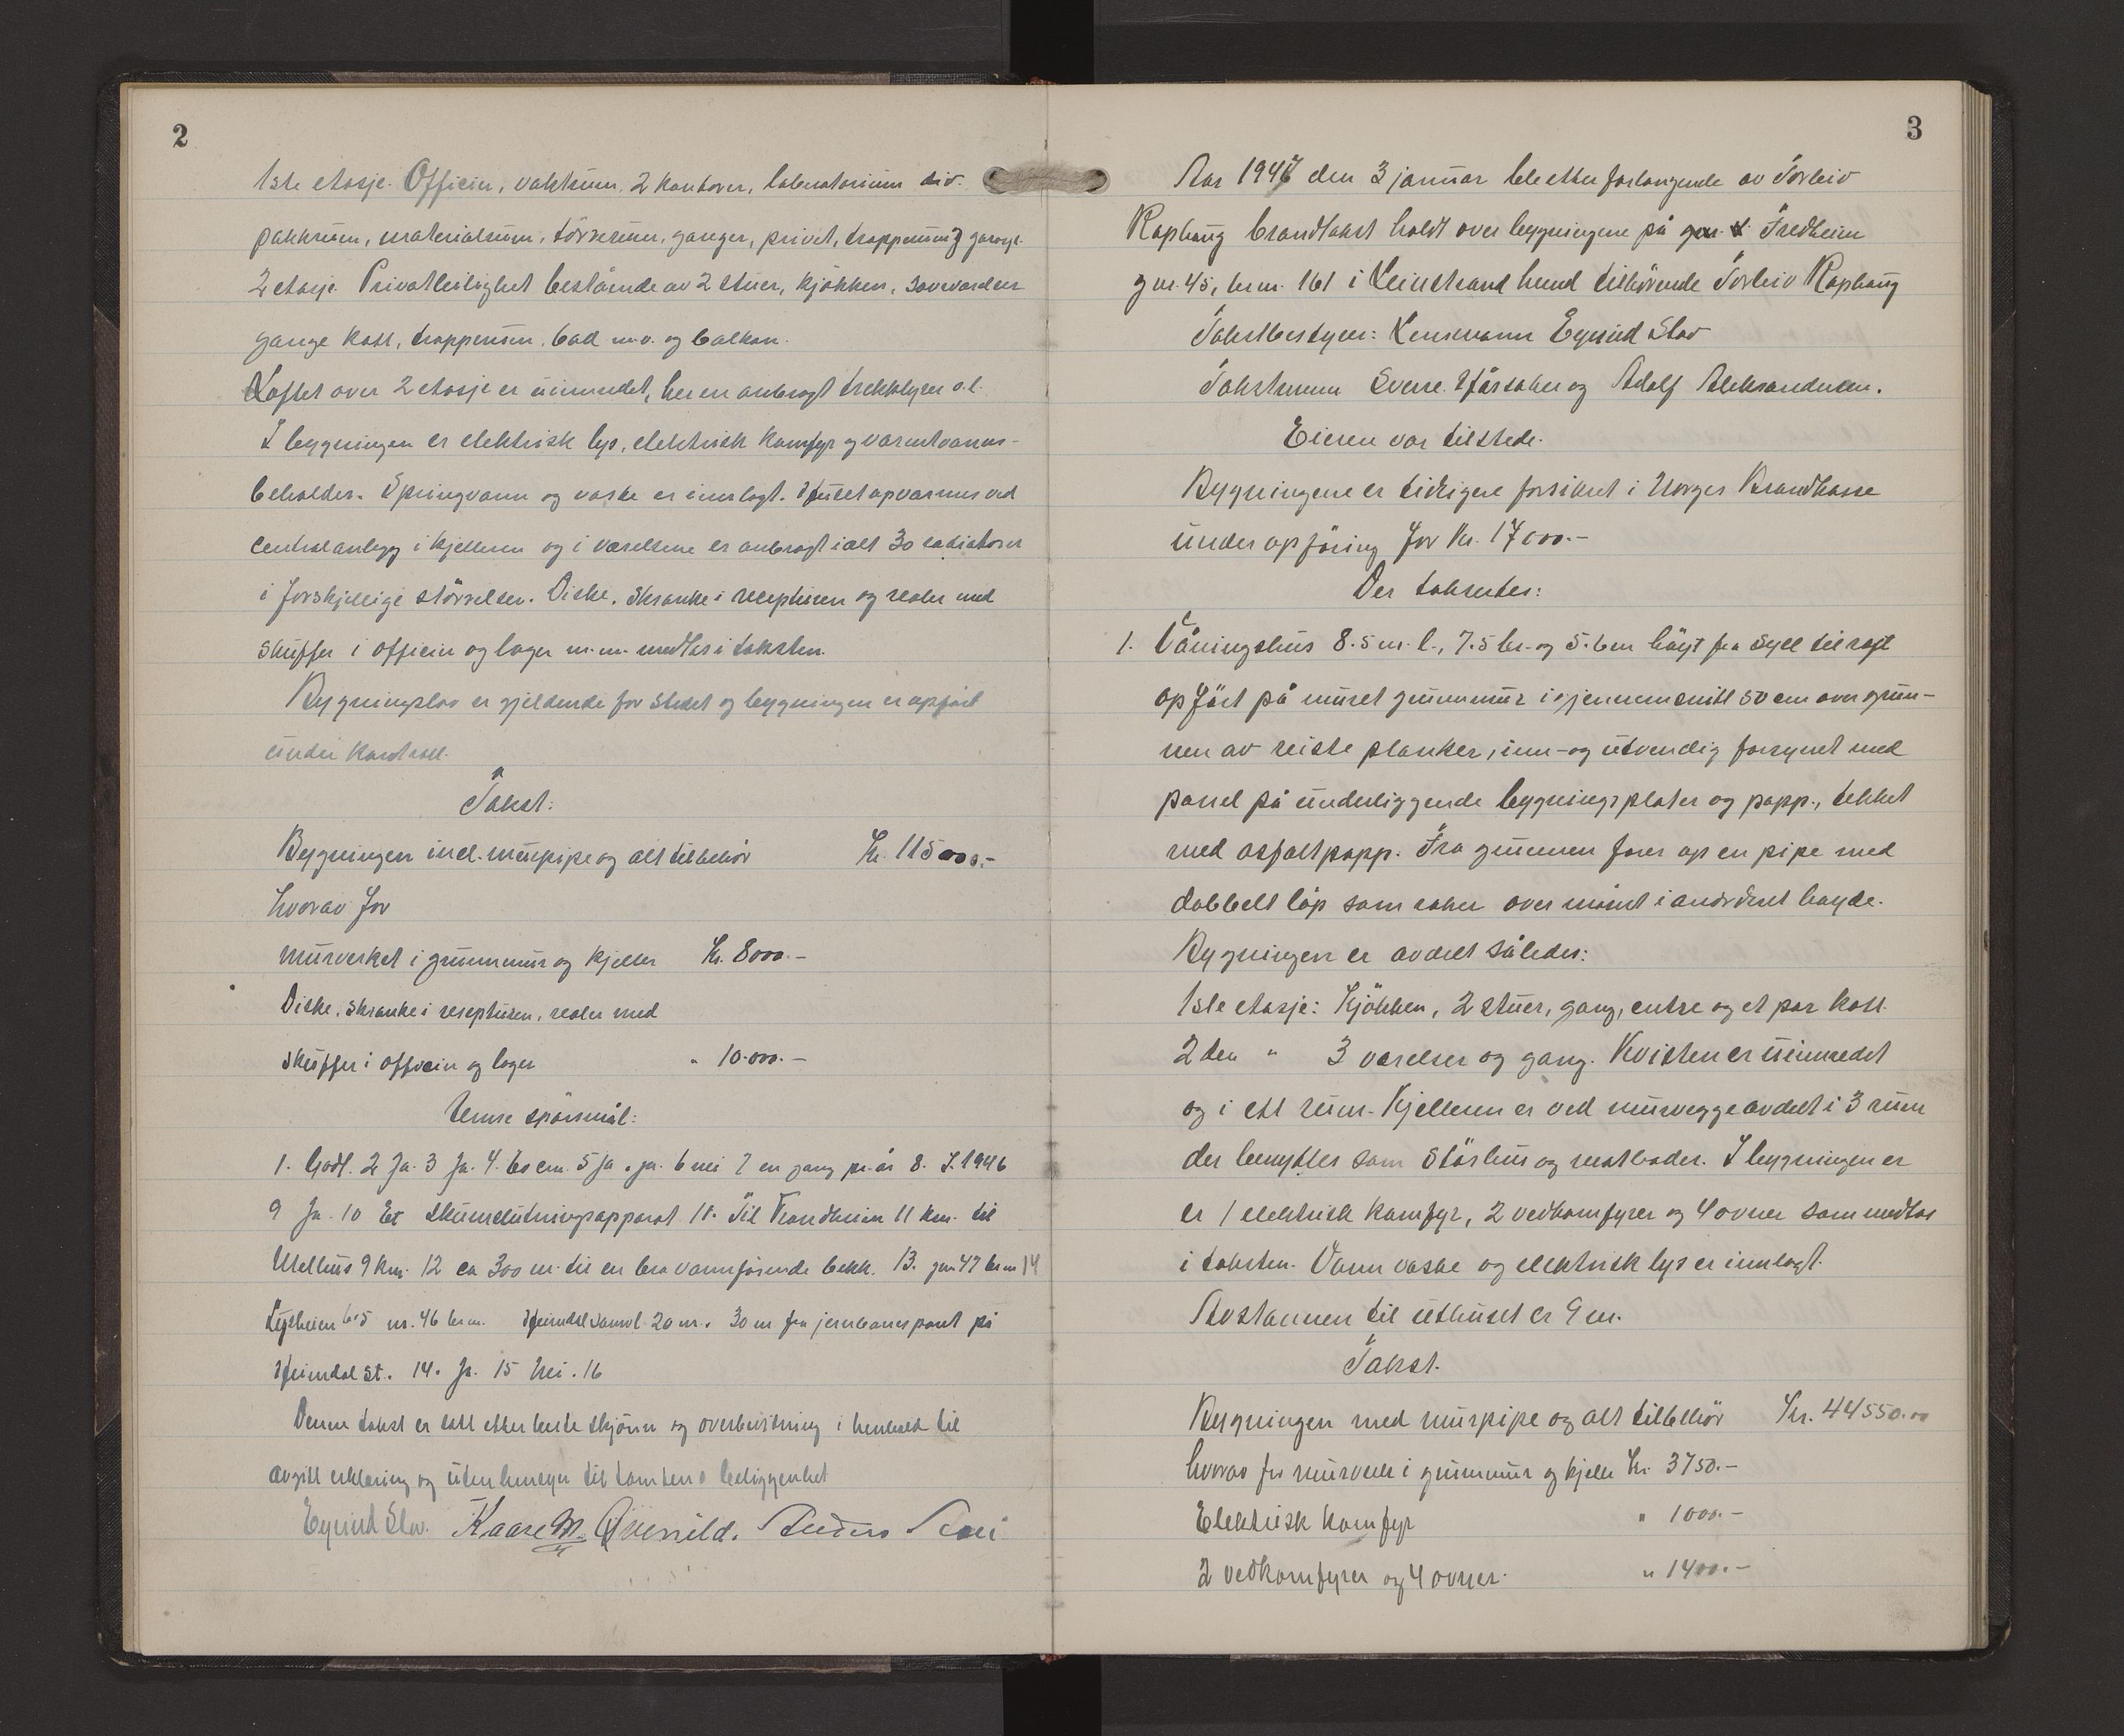 2
1ste etasje. Officin, vaktrum, 2 kontorer, laboratorium div.
pakkrum, materialrum, tørrerum, ganger, privet, trapperum og garage.
2 etasje Privatleilighet bestående av 2 stuer, kjøkken, soveværelser
gange kott, trapperum, bad m.v. og balkon.
Loftet over 2 etasje er uinnredet, her er anbragt trekkbyrer o.l.
I bygningen er elektrisk lys, elektrisk komfyr og varmtvanns-
beholder. Springvann og vaske er innlagt. Huset opvarmes ved
centralanlegg i kjelleren og i værelsene er anbragt ialt 30 radiatorer
i forskjellige størrelser. Diske, skranke i recepturen og reoler med
skuffer i officin og lager m.m. medtas i taksten.
Bygningslov er gjeldende for stedet og bygningen er opført
under kontroll.
Takst:
Bygningen incl. murpipe og alt tilbehør Kr. 115000.-
hvorav for
murverket i grunnmur og kjeller Kr. 8000.-
Diske, skranke i resepturen, reoler med
skuffer i officin og lager " 10.000.-
Temse spørsmål:
1. Godt. 2 Ja. 3 Ja. 4. 60 cm. 5 Ja. ja. 6 nei 7 en gang pr. år 8. I. 1946
9 Ja. 10 Et skumslukningsapparat 11. Til Trondheim 11 km. til
Melhus 9 km. 12 ca 300 m. til en bra vannførende bekk. 13. gnr 47 brnr 14
nr. 46 brnr. Heimdal samvl. 20 m. 30 m fra jernbanespor på
Heimdal st. 14. Ja. 15 Nei. 16
Denne takst er satt etter beste skjønn og overbevisning i henhold til
avgitt erklæring og uten hensyn til tomtens beliggenhet
Eyvind Slov. Kaare M. Qvenild.
3
Aar 1947 den 3 januar ble etter forlangende av Torleiv
Raphaug brandtakst holdt over bygningene på Fredheim
gnr. 45, brnr. 161 i Leinstrand herred tilhørende Torleiv Raphaug
Takstbestyrer: Lensmann Eyvind Slov
Takstmenn Sverre Hårsaker og Adolf Aleksandersen.
Eieren var tilstede.
Bygningene er tidligere forsikret i Norges Brandkasse
under opføring for Kr. 17000.-
Der takseres:
1. Våningshus 8.5 m. l., 7.5 br. og 5.6 m høyt fra syll til raft
opført på muret grunnmur i gjennemsnitt 50 cm over grun-
nen av reiste planker, inn- og utvendig forsynet med
panel på underliggende bygningsplater og papp, tekket
med asfaltpapp. Fra grunnen fører op en pipe med
dobbelt løp som raker over mønet i anordnet høyde.
Bygningen er avdelt således:
1ste etasje: Kjøkken, 2 stuer, gang, entre og et par kott.
2den " 3 værelser og gang. Kvisten er uinnredet
og i ett rum. Kjelleren er ved murvegge avdelt i 3 rum
der benyttes som størhus og matboder. I bygningen er
er 1 elektrisk komfyr, 2 vedkomfyrer og 4 ovner som medtas
i taksten. Vann vaske og elektrisk lys er innlagt.
Avstannen til uthuset er 9 m.
Takst.
Bygningen med murpipe og alt tilbehør Kr. 44550.00
hvorav for murverk i grunnmur og kjeller Kr. 3750.-
Elektrisk komfyr " 1000.-
2 vedkomfyrer og 4 ovner. " 1400.-